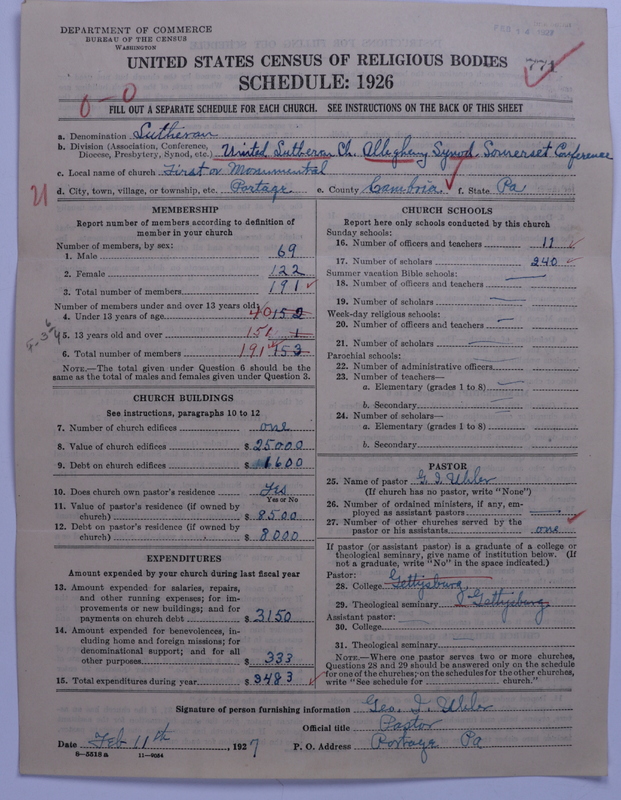 DEPARTMENT OF COMMERCE
BUREAU OF THE CENSUS
WASHINGTON
UNITED STATES CENSUS OF RELIGIOUS BODIES
771
SCHEDULE: 1926
0-0
FILL OUT A SEPARATE SCHEDULE FOR EACH CHURCH. SEE INSTRUCTIONS ON THE BACK OF THIS SHEET
a. Denomination Lutheran
b. Division (Association, Conference,
Diocese, Presbytery, Synod, etc.) United Lutheran Ch. Allegheny Synod. Somerset Conference
c. Local name of church First or Monumental
d. City, town, village, or township, etc. Portage e. County Cambria f. State Pa
21
MEMBERSHIP
Report number of members according to definition of
member in your church
Number of members, by sex:
1. Male 69
2. Female 122
3. Total number of members 191
Number of members under and over 13 years old:
4. Under 13 years of age 40 152
5. 13 years old and over 151 1
6. Total number of members 191 153
NOTE.—The total given under Question 6 should be
same as the total of males and females given under Question 3.
CHURCH BUILDINGS
See instructions, paragraphs 10 to 12
7. Number of church edifices one
8. Value of church edifices $ 25000
9. Debt on church edifices $ 1600
10. Does church own pastor's residence Yes
Yes or No
11. Value of pastor's residence (if owned by
church) $ 8500
12. Debt on pastor's residence (if owned by
church) $ 8000
EXPENDITURES
Amount expended by your church during last fiscal year
13. Amount expended for salaries, repairs,
and other running expenses; for im-
provements or new buildings; and for
payments on church debt $ 3150
14. Amount expended for benevolences, in-
cluding home and foreign missions; for
denominational support; and for all
other purposes $ 333
15. Total expenditures during year $ 3483
CHURCH SCHOOLS
Report here only schools conducted by this church
Sunday schools:
16. Number of officers and teachers 11
17. Number of scholars 240
Summer vacation Bible schools:
18. Number of officers and teachers
19. Number of scholars
Week-day religious schools:
20. Number of officers and teachers
21. Number of scholars
Parochial schools:
22. Number of administrative officers
23. Number of teachers—
a. Elementary (grades 1 to 8)
b. Secondary
24. Number of scholars—
a. Elementary (grades 1 to 8)
b. Secondary
PASTOR
25. Name of pastor G. I. Uhler
(If church has no pastor, write "None")
26. Number of ordained ministers, if any, em-
ployed as assistant pastors
27. Number of other churches served by the
pastor or his assistants one
If pastor (or assistant pastor) is a graduate of a college or
theological seminary, give name of institution below. (If
not a graduate, write "No" in the space indicated.)
Pastor:
28. College Gettysburg
29. Theological seminary Gettysburg
Assistant pastor:
30. College
31. Theological seminary
NOTE.—Where one pastor serves two or more churches,
Questions 28 and 29 should be answered only on the schedule
for one of the churches; on the schedules for the other churches,
write "See schedule for church."
Signature of person furnishing information Geo. I. Uhler
Official title Pastor
Date Feb 11th, 1927 P. O. Address Portage Pa
8—5518 a 11—9084